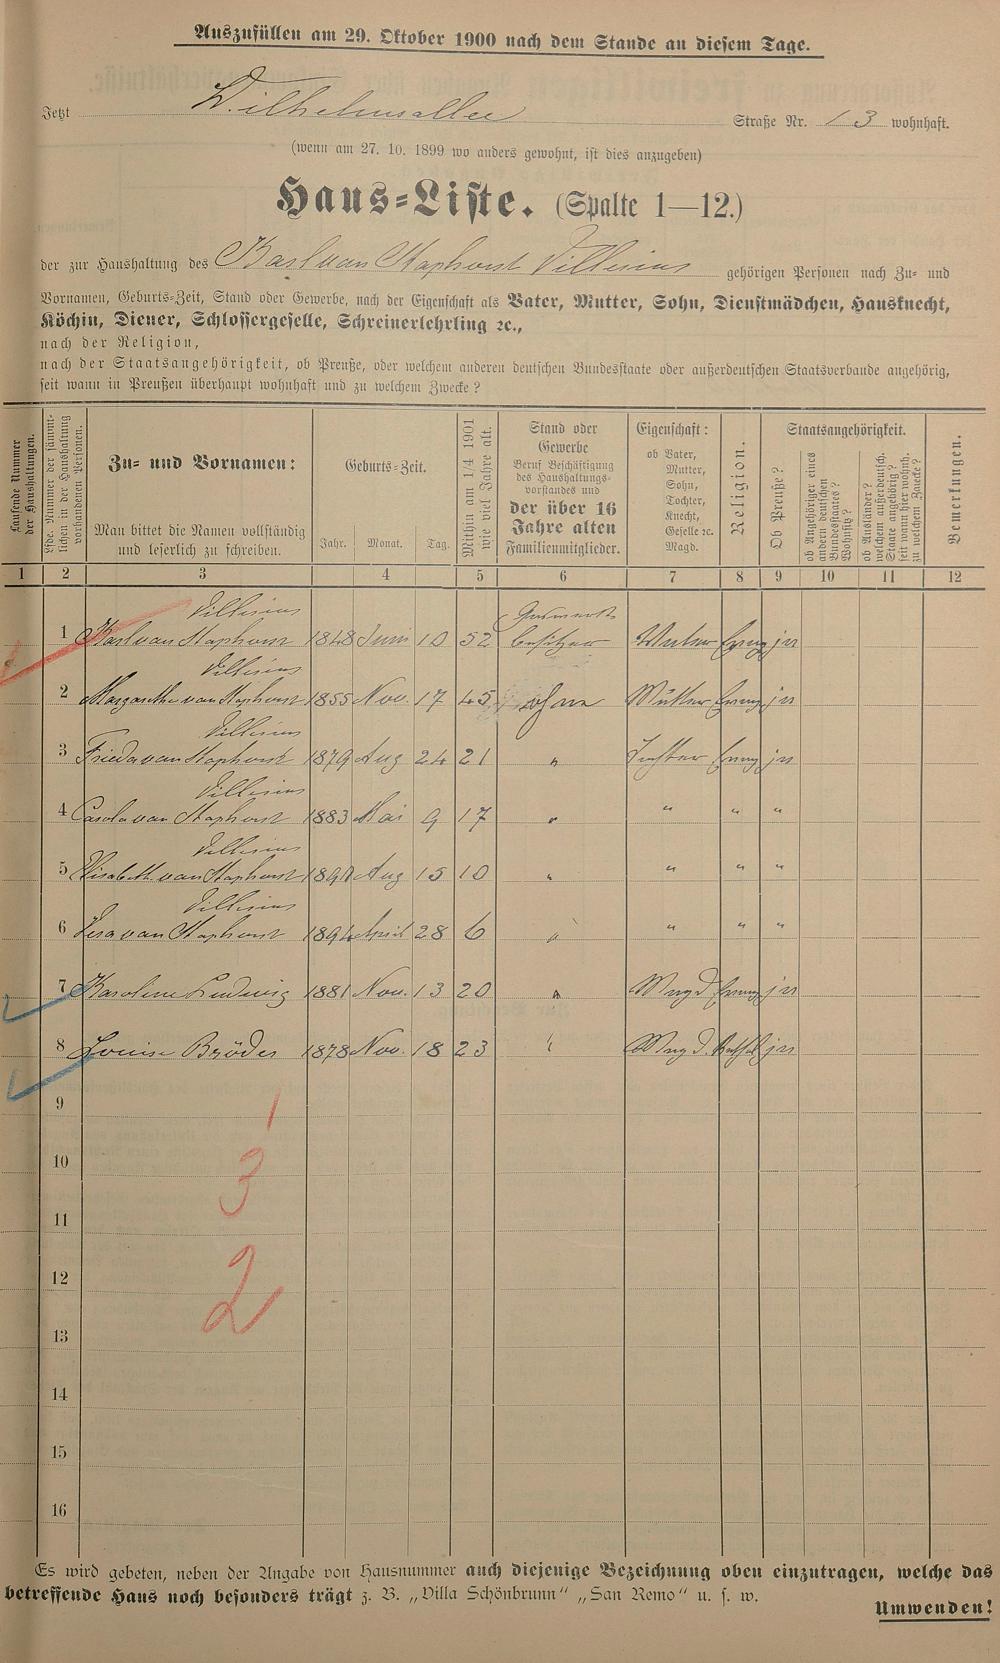 Auszufüllen am 29. Oktober 1900 nach dem Stande an diesem Tage.
Jetzt Wilhelmsallee Straße Nr. 13 wohnhaft.
(wenn am 27. 10. 1899 wo anders gewohnt, ist dies anzugeben)
Haus-Liste. (Spalte 1—12.)
der zur Haushaltung des Karl van Staphorst Villesius gehörigen Personen nach Zu- und
Vornamen, Geburts-Zeit, Stand oder Gewerbe, nach der Eigenschaft als Vater, Mutter, Sohn, Dienstmädchen, Hausknecht,
Köchin, Diener, Schlossergeselle, Schreinerlehrling ꝛc.,
nach der Religion,
nach der Staatsangehörigkeit, ob Preuße, oder welchem anderen deutschen Bundesstaate oder außerdeutschen Staatsverbande angehörig,
seit wann in Preußen überhaupt wohnhaft und zu welchem Zwecke?
Laufende Nummer der Haushaltungen.
Lfde. Nummer der sämmtlichen in der Haushaltung vorhandenen Personen.
Zu- und Vornamen:
Man bittet die Namen vollständig
und leserlich zu schreiben.
Geburts-Zeit.
Jahr. Monat. Tag.
Mithin am 1/4 1901 wie viel Jahre alt.
Stand oder
Gewerbe
Beruf Beschäftigung
des Haushaltungs-
vorstandes und
der über 16
Jahre alten
Familienmitglieder.
Eigenschaft:
ob Vater,
Mutter,
Sohn,
Tochter,
Knecht,
Geselle ꝛc.
Magd.
Religion.
Staatsangehörigkeit.
Ob Preuße?
ob Angehöriger eines andern deutschen Bundesstaates? Wohnsitz?
ob Ausländer? welchem außerdeutsch. Staate angehörig? seit wann hier wohnh. zu welchem Zwecke?
Bemerkungen.
1 2 3 4 5 6 7 8 9 10 11 12
Villesius
1 Karl van Staphorst 1848 Juni 10 52 besitzer Vater Evang ja
Villesius
2 Margarethe van Staphorst 1855 Nov. 17 45 ohne Mutter Evang ja
Villesius
3 Frieda van Staphorst 1879 Aug 24 21 " Tochter Evang ja
Villesius
4 Carola van Staphorst 1883 Mai 9 17 " " " "
Villesius
5 Elisabeth van Staphorst Aug 15 10 " " " "
Villesius
6 van Staphorst 1894 April 28 6 " " " "
7 Karoline Ludwig 1881 Nov. 13 20 " Magd Evang ja
8 Louise Bröder 1878 Nov. 18 23 " Magd. Kathol ja
9
1
10
3
11
12
2
13
14
15
16
Es wird gebeten, neben der Angabe von Hausnummer auch diejenige Bezeichnung oben einzutragen, welche das
betreffende Haus noch besonders trägt z. B. „Villa Schönbrunn" „San Remo" u. s. w.
Umwenden!